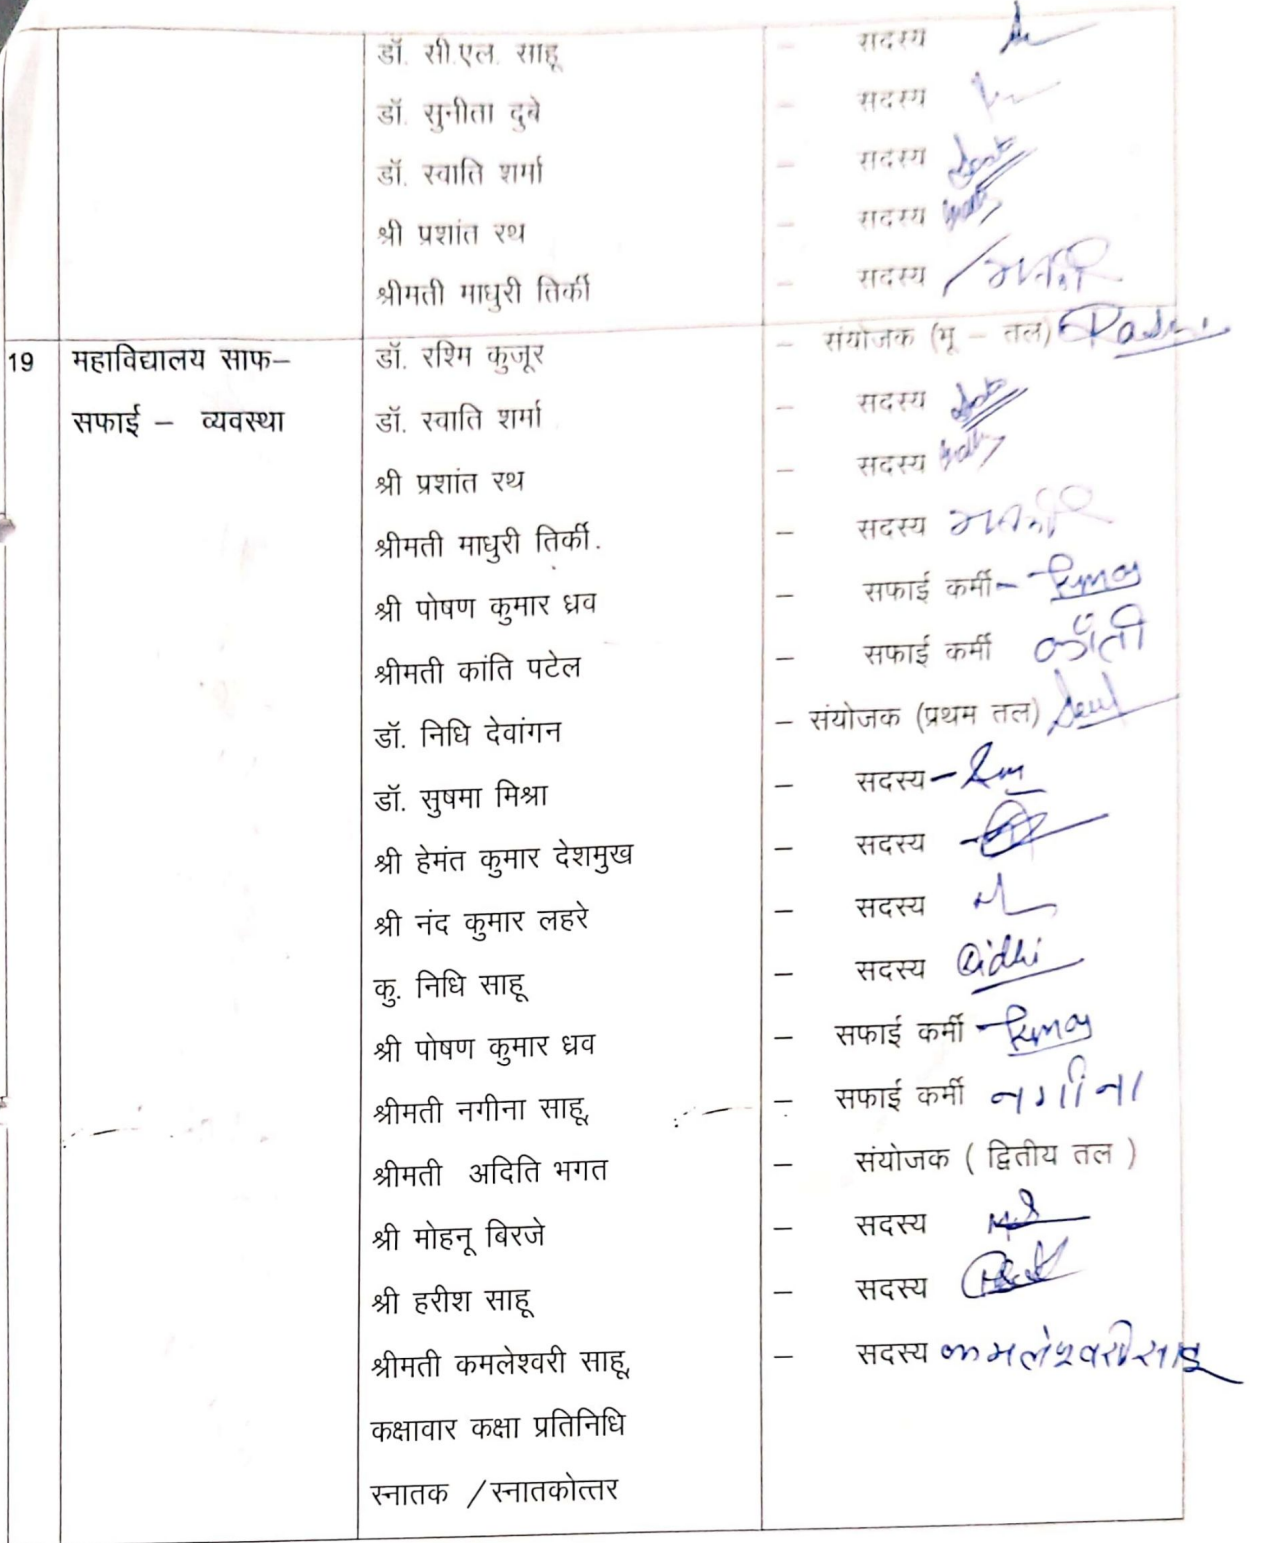 डॉ. सी.एल. साहू – सदस्य
डॉ. सुनीता दुबे – सदस्य
डॉ. स्वाति शर्मा – सदस्य
श्री प्रशांत रथ – सदस्य
श्रीमती माधुरी तिर्की – सदस्य
19 महाविद्यालय साफ– डॉ. रश्मि कुजूर – संयोजक (भू – तल)
सफाई – व्यवस्था डॉ. स्वाति शर्मा – सदस्य
श्री प्रशांत रथ – सदस्य
श्रीमती माधुरी तिर्की. – सदस्य
श्री पोषण कुमार ध्रव – सफाई कर्मी
श्रीमती कांति पटेल – सफाई कर्मी काँती
डॉ. निधि देवांगन – संयोजक (प्रथम तल)
डॉ. सुषमा मिश्रा – सदस्य
श्री हेमंत कुमार देशमुख – सदस्य
श्री नंद कुमार लहरे – सदस्य
कु. निधि साहू – सदस्य
श्री पोषण कुमार ध्रव – सफाई कर्मी
श्रीमती नगीना साहू – सफाई कर्मी नगीना
श्रीमती अदिति भगत – संयोजक ( द्वितीय तल )
श्री मोहनू बिरजे – सदस्य
श्री हरीश साहू – सदस्य
श्रीमती कमलेश्वरी साहू – सदस्य कमलेश्वरी साहू
कक्षावार कक्षा प्रतिनिधि
स्नातक /स्नातकोत्तर